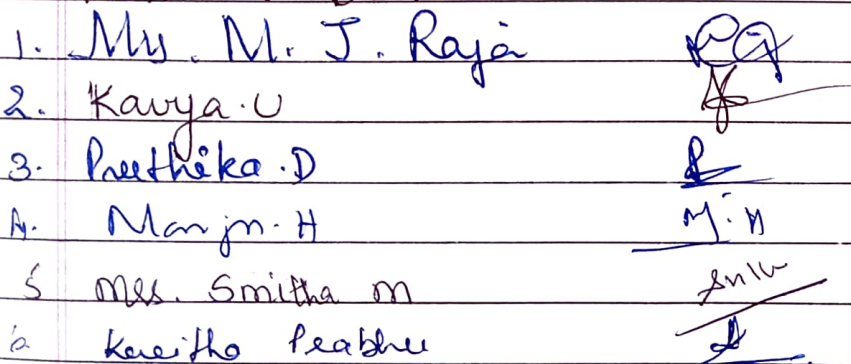 1. Ms. M. J. Raja
2. Kavya.U
3. Preethika.D
4. Manjn.H M.H
5 Mrs. Smitha m
6 Kavitha Prabhu